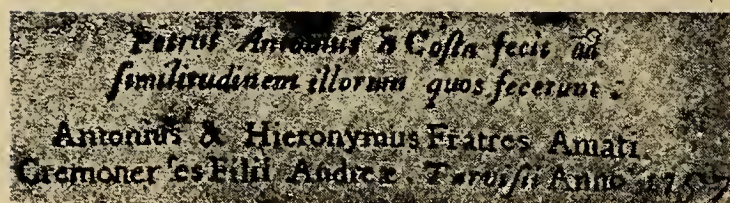 Petrus Antonius à Costa fecit ad
similitudinem illorum quos fecerunt :
Antonius & Hieronymus Fratres Amati
Cremonenses Filii Andreæ, Tarvisii Anno